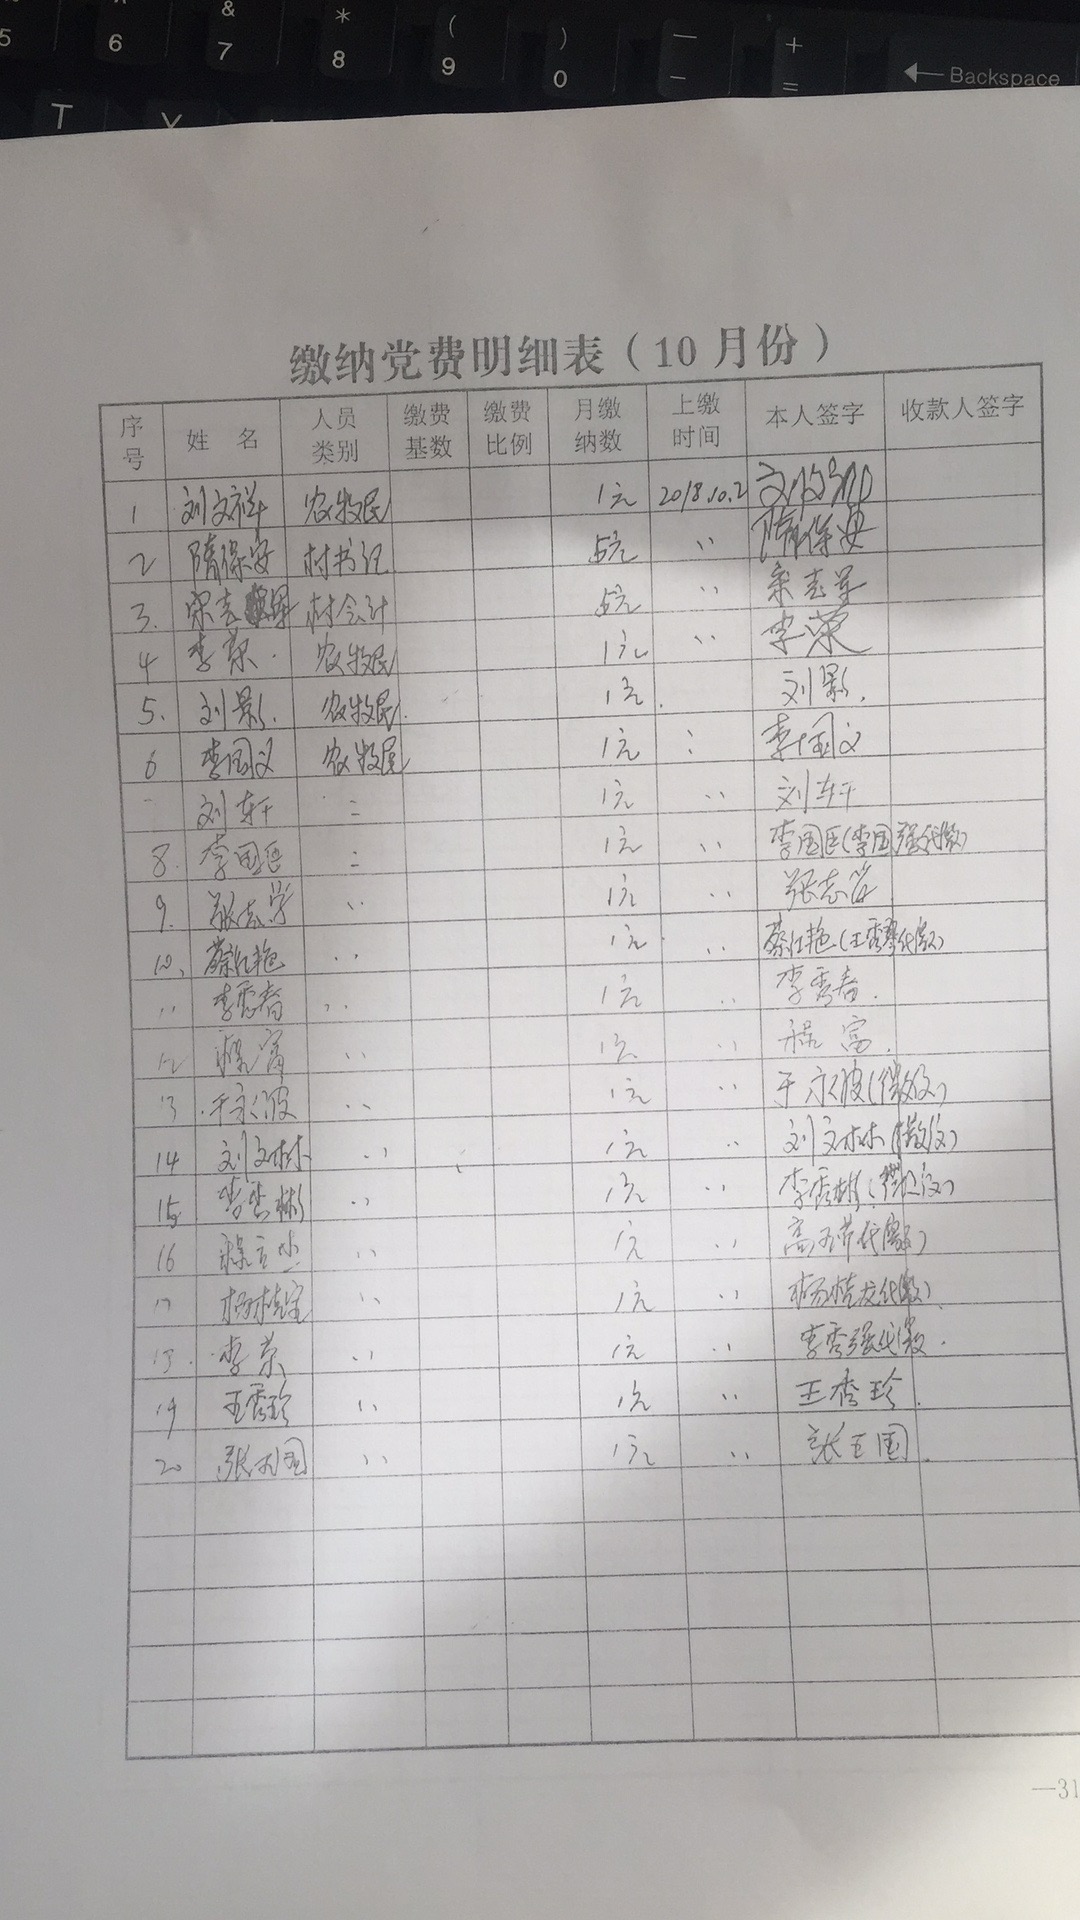 5 % 6 & 7 * 8 ( 9 ) 0 — - + = Backspace
T Y
缴纳党费明细表（10 月份）
序号 姓 名 人员类别 缴费基数 缴费比例 月缴纳数 上缴时间 本人签字 收款人签字
1 刘文祥 农牧民 1元 2018.10.2
2 隋保安 村书记 5元 〃 隋保安
3. 宋志军 村会计 5元 〃 宋志军
4 李荣. 农牧民 1元 〃 李荣
5. 刘影. 农牧民. 1元. 刘影.
6 李国义 农牧民 1元 〃 李国义
刘轩 〃 1元 〃 刘轩
8. 李国臣 〃 1元 〃 李国臣(李国强代缴)
9. 张志学 〃 1元 〃 张志学
10. 蔡红艳 〃 1元 〃 蔡红艳(王秀琴代缴)
11 李秀春 〃 1元 〃 李秀春.
12 程富 〃 1元 〃 程富.
13 于永波 〃 1元 〃 于永波(微信)
14 刘文林 〃 1元 〃 刘文林(微信)
15 李秀彬 〃 1元 〃 李秀彬(微信)
16 〃 1元 〃 代缴)
17 杨桂宝 〃 1元 〃 杨桂发代缴)
18. 李荣 〃 1元 〃 李秀强代缴.
19 王秀珍 〃 1元 〃 王秀珍.
20 张玉国 〃 1元 〃 张玉国.
—31